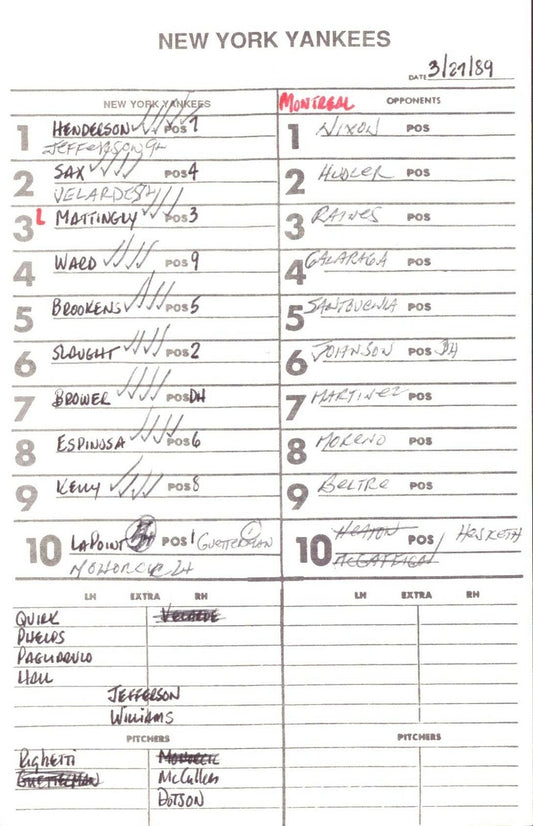 NEW YORK YANKEES
DATE 3/27/89
NEW YORK YANKEES
MONTREAL OPPONENTS
1 HENDERSON POS 7
JEFFERSON 9H
2 SAX POS 4
VELARDE 5H
3 L MATTINGLY POS 3
4 WARD POS 9
5 BROOKENS POS 5
6 SLAUGHT POS 2
7 BROWER POS DH
8 ESPINOSA POS 6
9 KELLY POS 8
10 LAPOINT POS 1 GUETTERMAN
MOHORCIC
1 NIXON POS
2 HUDLER POS
3 RAINES POS
4 GALARAGA POS
5 SANTOVENIA POS
6 JOHNSON POS DH
7 MARTINEZ POS
8 MORENO POS
9 BELTRE POS
10 HEATON POS HESKETH
MCGAFFIGAN
LH EXTRA RH
QUIRK VELARDE
PHELPS
PAGLIARULO
HALL
JEFFERSON
WILLIAMS
PITCHERS
RIGHETTI MOHORCIC
GUETTERMAN McCULLERS
DOTSON
LH EXTRA RH
PITCHERS